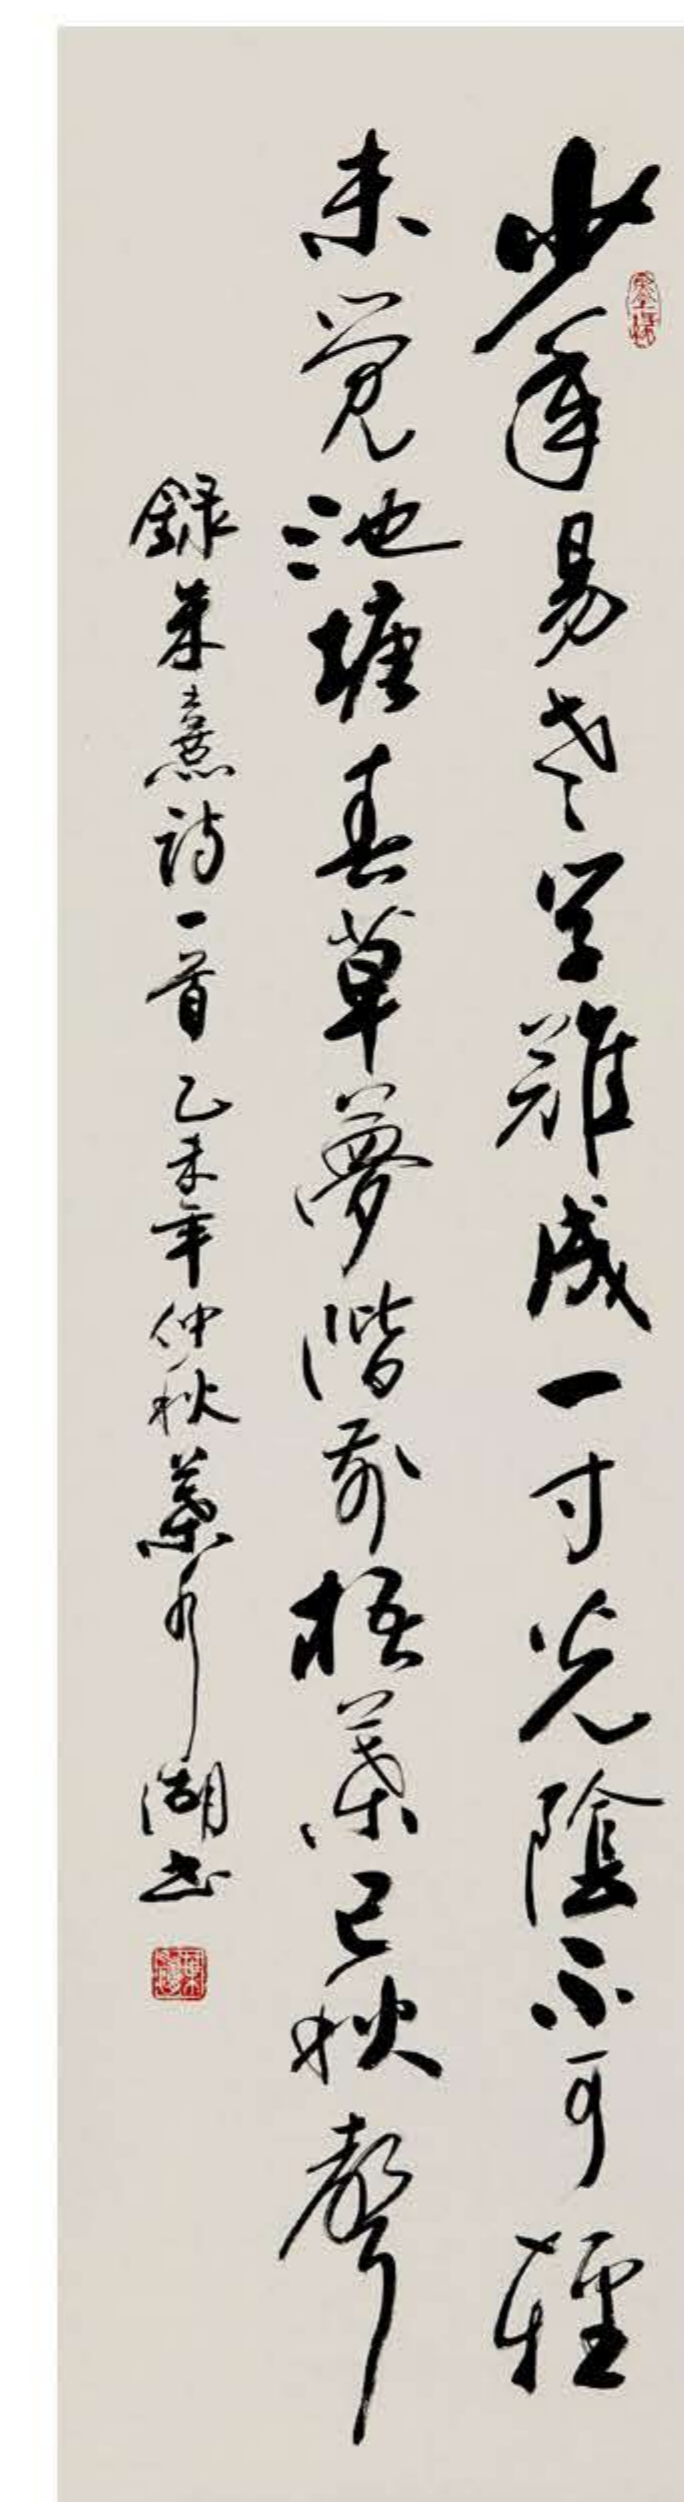 少年易老学難成一寸光陰不可輕
未覺池塘春草夢階前梧葉已秋聲
錄朱熹詩一首乙未年仲秋葉水湖書